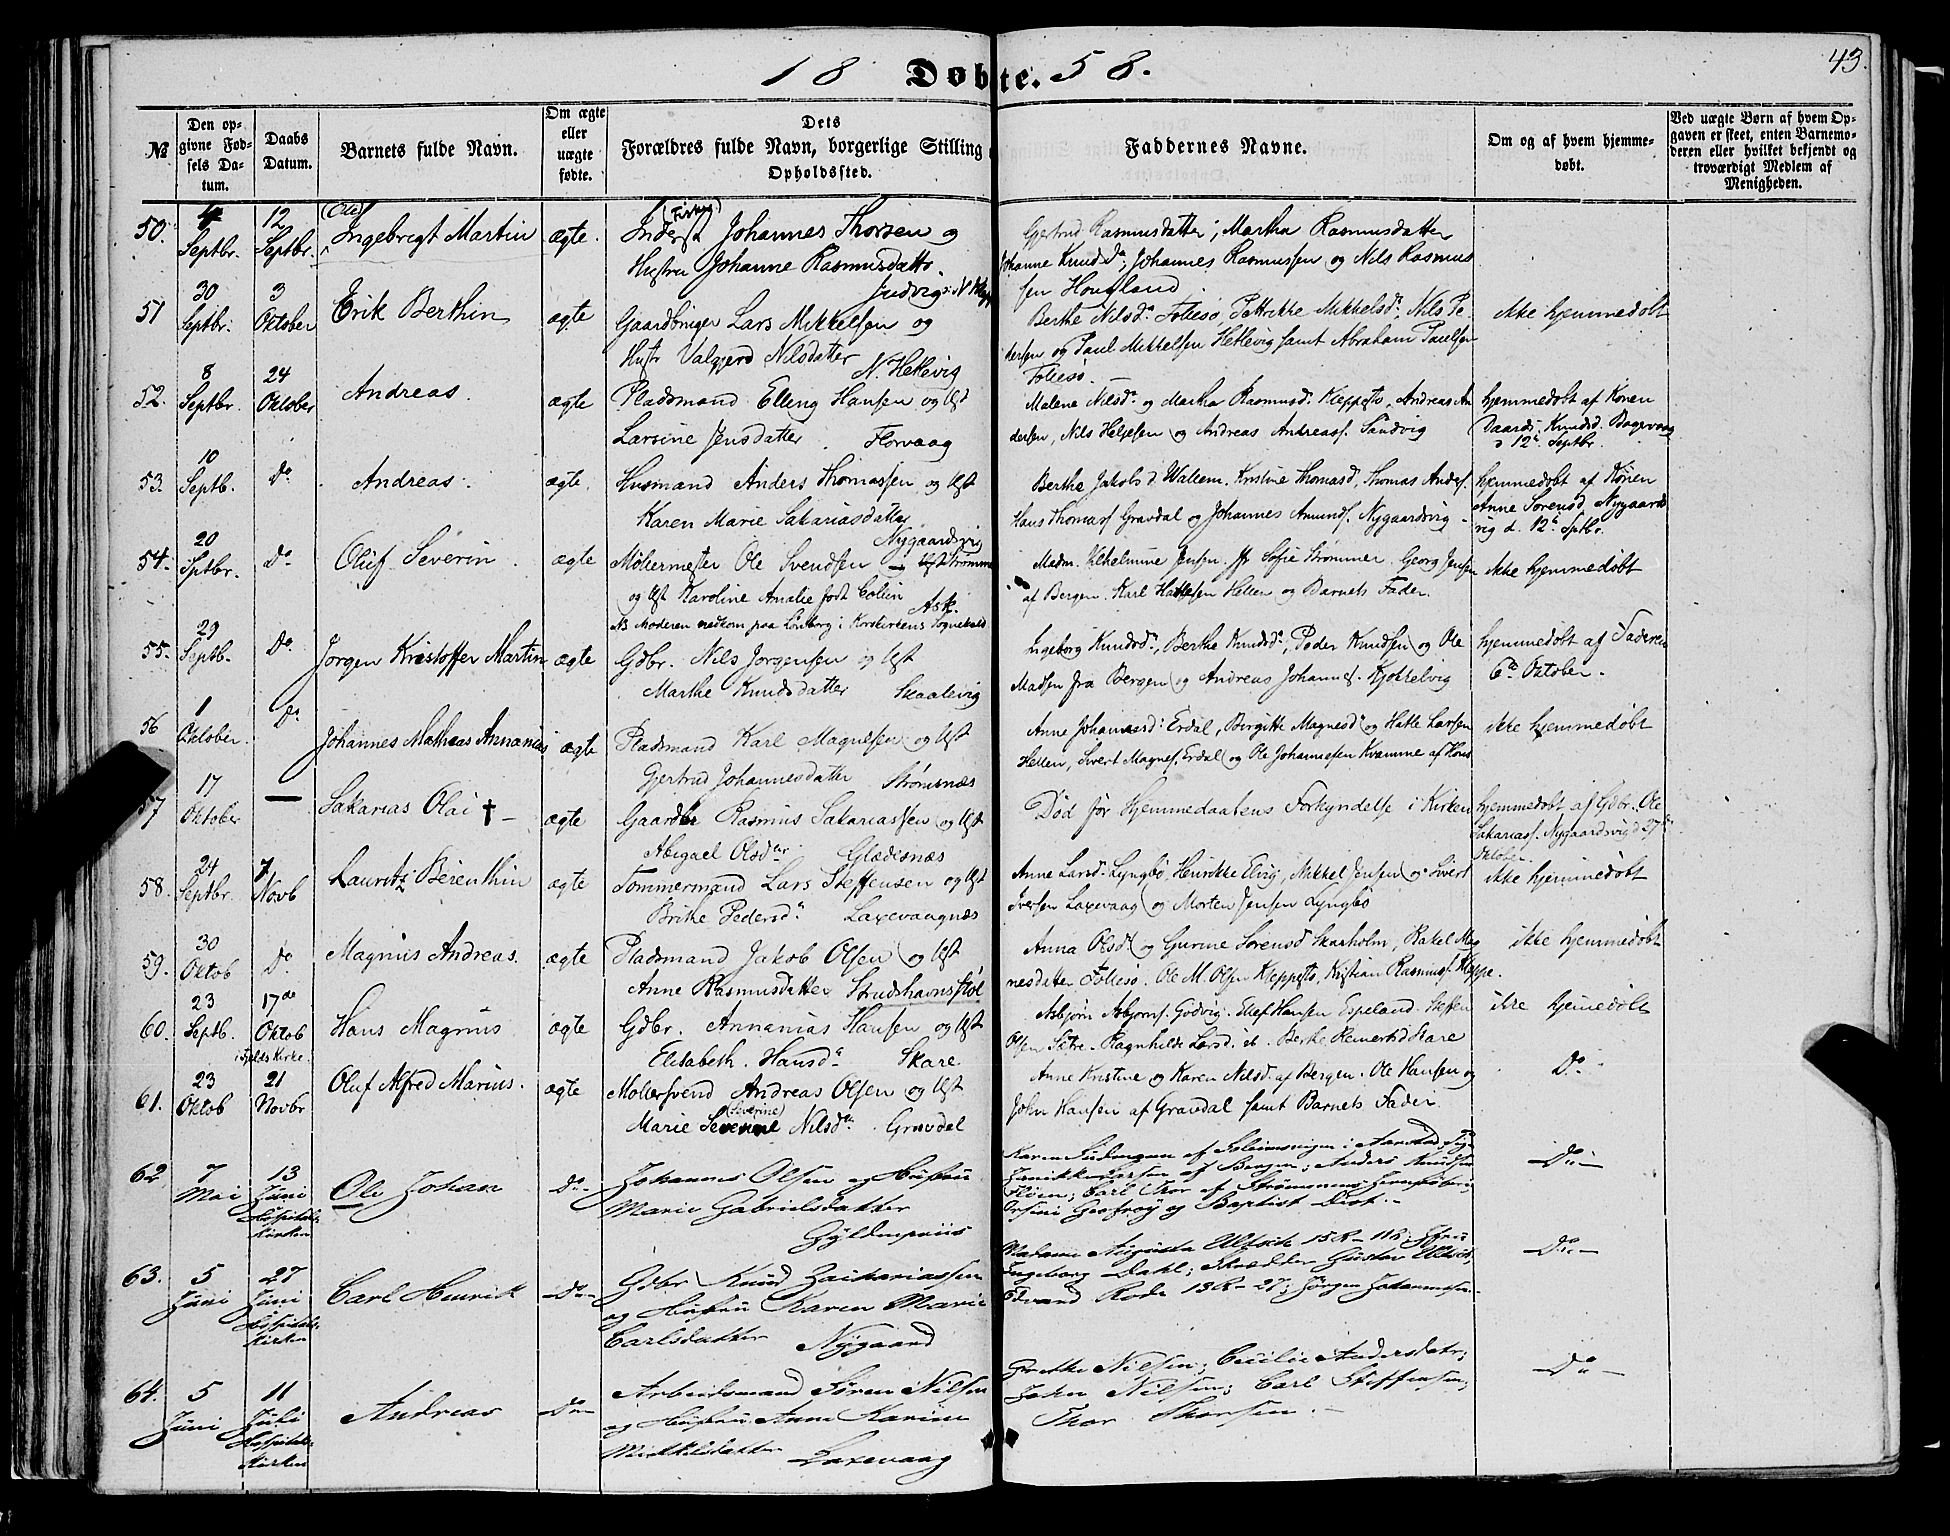 43.
18 Døbte. 58.
№
Den op-
givne Fød-
sels Da-
tum.
Daabs
Datum.
Barnets fulde Navn.
Om ægte
eller
uægte
fødte.
Dets
Forældres fulde Navn, borgerlige Stilling
Opholdssted.
Faddernes Navne.
Om og af hvem hjemme-
døbt.
Ved uægte Børn af hvem Op-
gaven er skeet, enten Barnemo-
deren eller hvilket bekjendt og
troværdigt Medlem af
Menigheden.
50. 4 Septbr. 12 Septbr. (Ole) Ingebrigt Martin ægte.
Inderst Johannes Thorsen og
Hustru Johanne Rasmusdatte.
Gjertrud Rasmusdatter; Martha Rasmusdatter
Johanne Knudsda; Johannes Rasmussen og Nils Rasmus
sen Hougland.
51 30 Septbr. 3 Oktober Erik Berthin ægte
Gaardbruger Lars Mikkelsen og
Hustr Valgjerd Nilsdatter N. Hetlevig
Berthe Nilsda Follesø Mikkelsda, Nils Pe
dersen og Paul Mikkelsen Hetlevig samt Abraham Paulsen
Follesø.
ikke hjemmedøbt
52. 8 Septbr. 24 Oktober Andreas. ægte
Pladsmand Elling Hansen og Hst
Larsine Jensdatter. Florvaag
Malene Nilsda og Martha Rasmusd. Kleppestø, Andreas An
dersen, Nils Heljesen og Andreas Andreass. Sandvig
hjemmedøbt af Konen
Knudsd.
d 12te Septbr.
53. 10 Septb. Do Andreas. ægte.
Husmand Anders Thomassen og Hst
Karen Marie Sakariasdatter
Nygaardsvig
Berthe Jakobsd. Wallem. Kristine Thomasd, Thomas Anders.
Hans Thomass. Gravdal og Johannes Amunds. Nygaardsvig
hjemmedøbt af Konen
Anne Sørensd Nygaards
vig d. 12te Sptbr.
54. 20 Sptbr. Do Oluf Severin. ægte
Møllermester Ole Svendsen
og Hst Karoline Amalie født Collin
Ask.
NB Moderen nedkom paa i Korskirkens Sognekald
Madm. Vilhelmine Jensen. Sofie Strømmer. Georg Jensen
af Bergen. Karl Hatlesen Hellen og Barnets Fader.
ikke hjemmedøbt
55. 29 Septb. Do Jørgen Kristoffer Martin ægte
Gdbr. Nils Jørgensen og Hst
Marthe Knudsdatter Skaalevig
Ingeborg Knudsda, Berthe Knudsda, Peder Knudsen og Ole
Madsen fra Bergen og Andreas Johanns. Kjøkkelvig
hjemmedøbt af Faderen
6te Oktober.
56 1 Oktober. Do Johannes Matheas Annanias ægte
Pladsmand Karl Magnesen og Hst
Gjertrud Johannesdatter Strømsnæs
Anne Johannesd. Erdal, Birgitte Magnesda og Hatle Larsen
Hellen, Sivert Magnes. Erdal og Ole Johannessen Kvamme af Hous
ikke hjemmedøbt
57 17 Oktober — Sakarias Olai † — ægte
Gaardbr Rasmus Sakariassen og Hst
Abigael Olsdtr. Glædesnæs
Død før Hjemmedaabens Forkyndelse i Kirken
hjemmedøbt af Gdbr. Ole
Sakarias. Nygaardsvig d 27de
Oktober.
58. 24 Septbr. 7 Novb Lauritz Berenthin ægte
Tømmermand Lars Steffensen og Hst
Brithe Pedersda Laxevaagnæs
Anne Larsda Lyngbø, Henrikke Elvig, Mikkel Jensen og Sivert
Iversen Laxevaag og Morten Jensen Lyngbø
ikke hjemmedøbt
59. 30 Oktob Do Magnus Andreas. ægte
Pladsmand Jakob Olsen og Hst
Anne Rasmusdatter Strudshavnsstøl
Anna Olsd og Gurine Sørensd Skarholm, Rakel Mag
nesdatter Follesø. Ole M. Olsen Kleppestø, Kristian Rasmuss. Kleppe.
ikke hjemmedøbt
60. 23 Septb. 17de Oktob i Fjelds Kirke. Hans Magnus ægte
Gdbr. Annanias Hansen og Hst
Elisabeth Hansda Skare
Asbjørn Asbjørns. Godvig. Ellef Hansen Espeland. Steffen
Olsen Sætre. Ragnhilde Larsd. ib. Berthe Reinertsd Skare
ikke hjemmedøbt
61. 23 Oktob 21 Novbr Oluf Alfred Marius. ægte
Møllersvend Andreas Olsen og Hst
Marie (Severine) Nilsda. Gravdal
Anne Kristine og Karen Nilsd. af Bergen. Ole Hansen og
John Hansen af Gravdal samt Barnets Fader
Do
62 7 Mai 13 Juni Hospitals-Kirken Ole Johan Do
Johannes Olsen og Hustru
Marie Gabrielsdatter
Gyldenpriis
Larsen af Bergen; Anders Knudsen
Carl Thor af Strømsnes
og Baptist
Do
63. 5 Juni 27 Juni Hospitals-Kirken Carl Henrik Do
Gdbr Knud Zachariassen
og Hustru Karen Marie
Carlsdatter Nygaard
Madame Augusta Jfru
Ingeborg Dahl; Skrædder Gustav
Edvard Rode 13 R — 27; Jørgen Johannesen
Do
64. 5 Juni 11 Juli Hospitals-Kirken Andreas Do
Arbeidsmand Søren Nilsen
og Hustru Anne Karine
Mikkelsdatter Laxevaag
Grethe Nilsen; Cecilie Andersdatr;
John Nilsen; Carl Steffensen;
Thor Thorsen.
Do